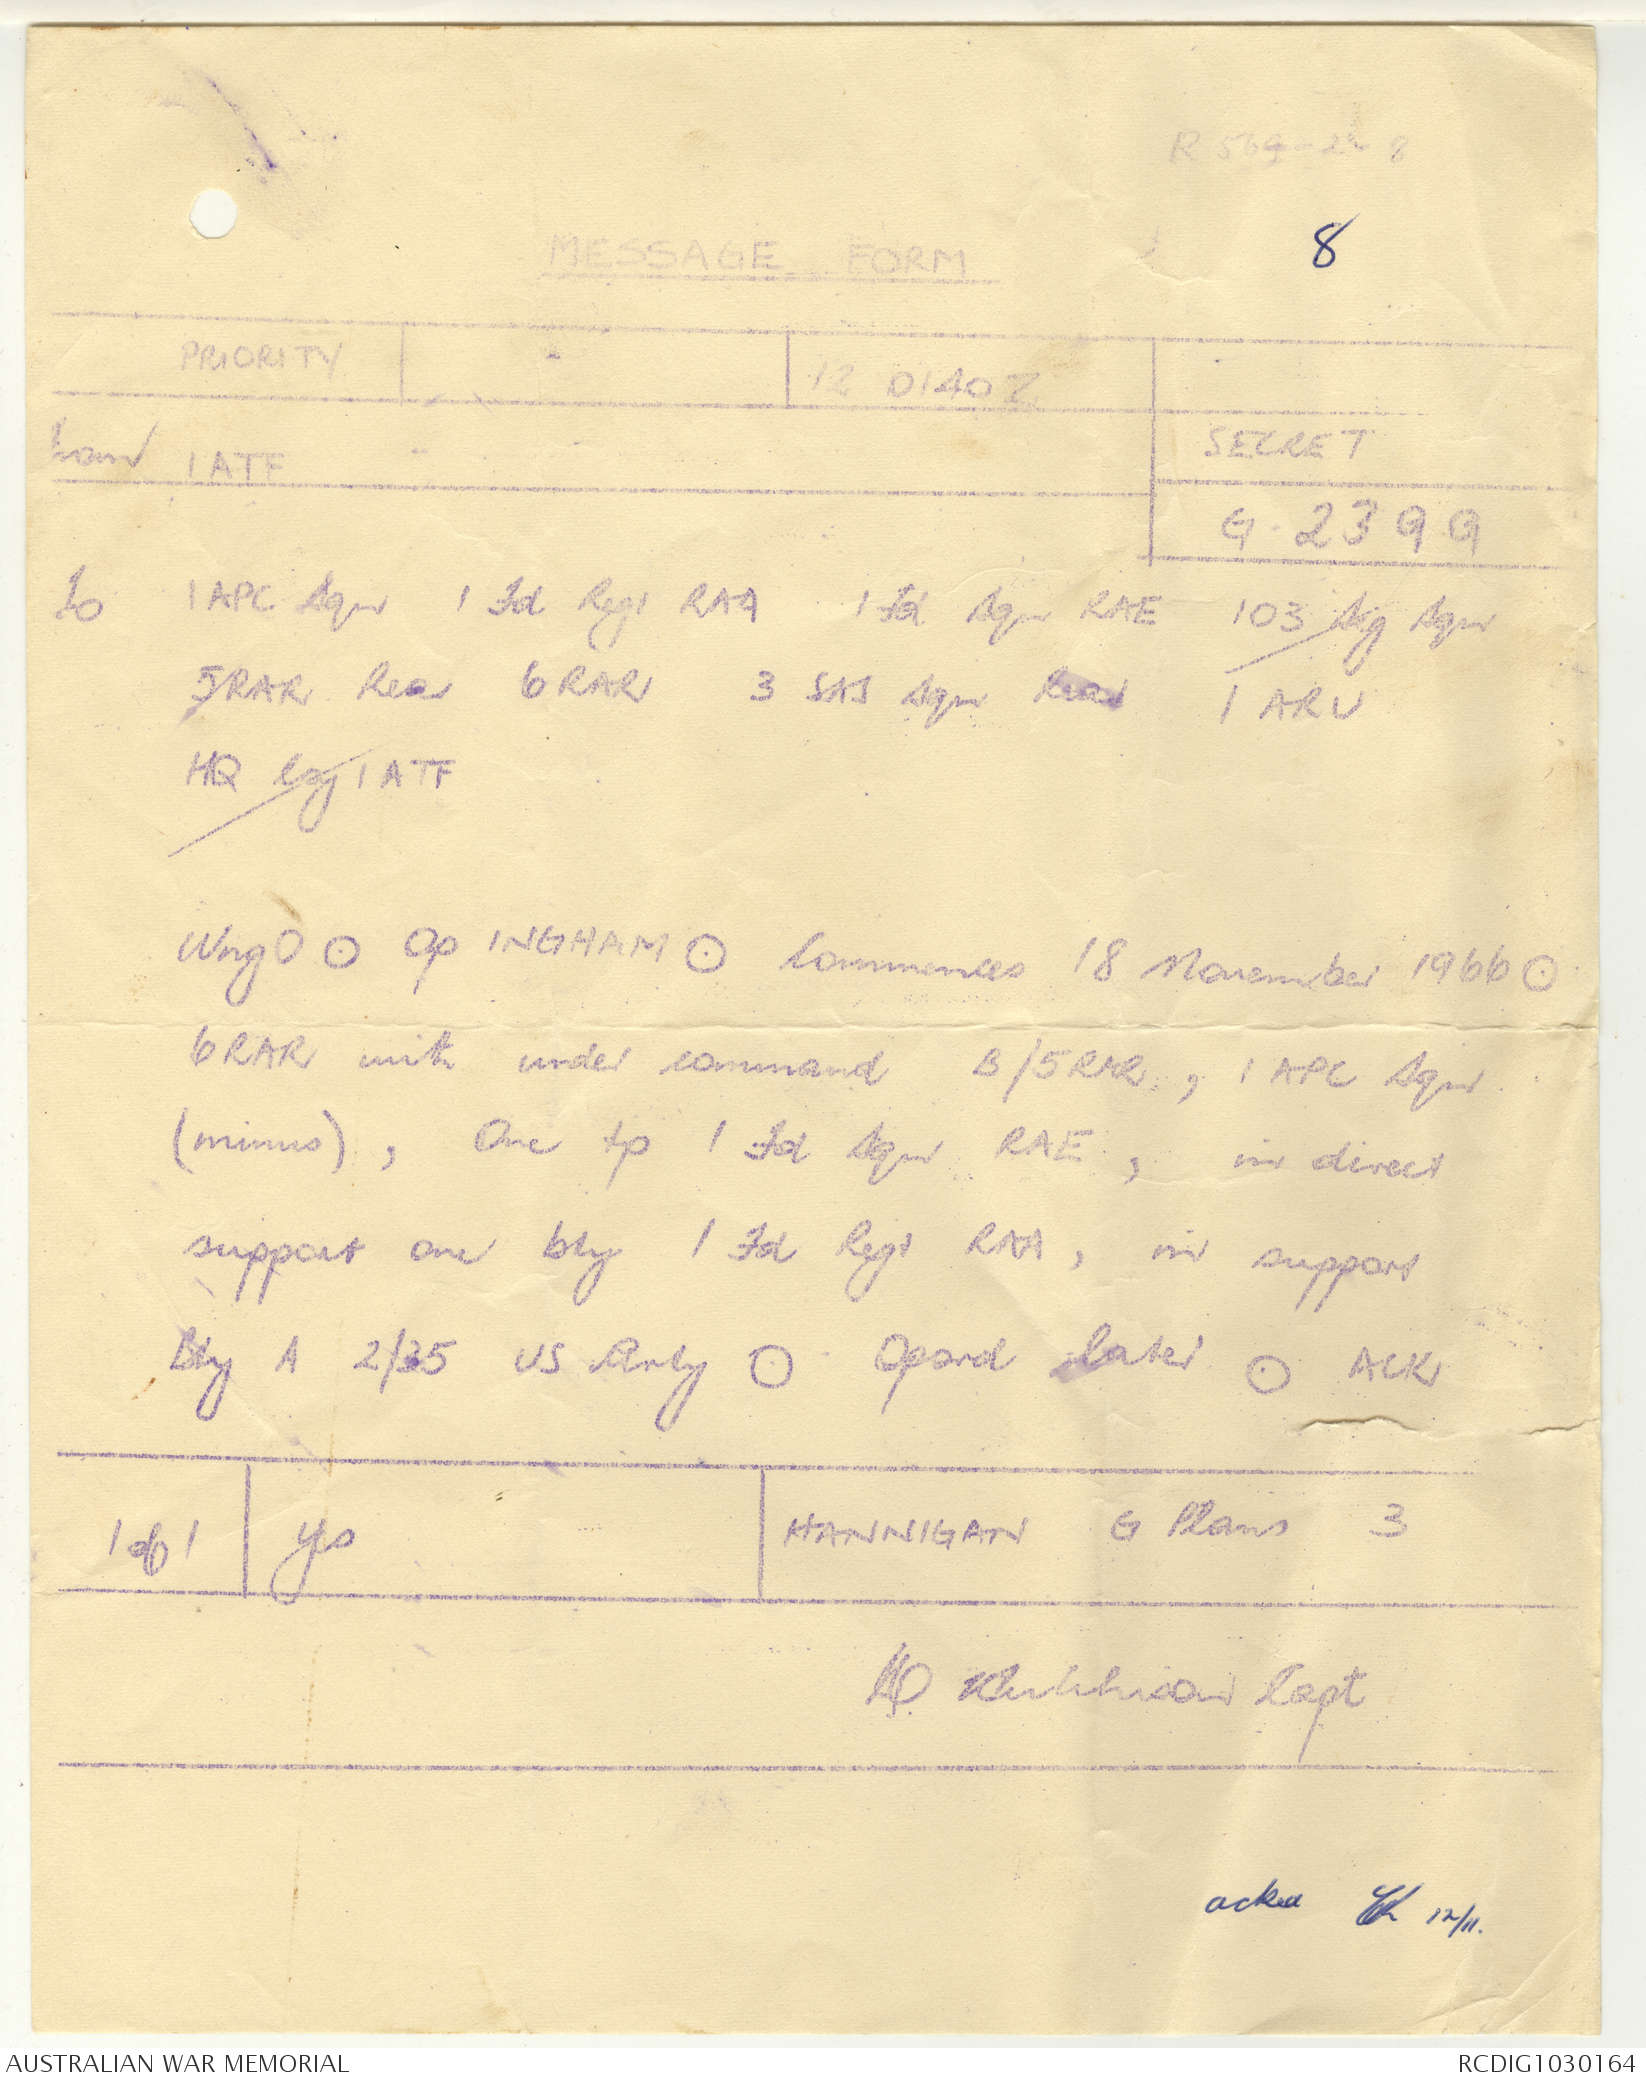 R 569-2- 8
8
MESSAGE FORM
PRIORITY 12 0140Z
From 1 ATF SECRET
G 2399
To 1 APC Sqn 1 Fd Regt RAA 1 Fd Sqn RAE 103 Sig Sqn
5RAR Rear 6RAR 3 SAS Sqn Rear 1 ARU
HQ Coy 1 ATF
WngO ⊙ Op INGHAM ⊙ Commences 18 November 1966 ⊙
6RAR with under command B/5RAR, 1 APC Sqn
(minus), One tp 1 Fd Sqn RAE, in direct
support one bty 1 Fd Regt RAA, in support
Bty A 2/35 US Arty ⊙ Opord later ⊙ ACK
1 of 1 yes HANNIGAN G Plans 3
Capt
acked 12/11.
AUSTRALIAN WAR MEMORIAL RCDIG1030164